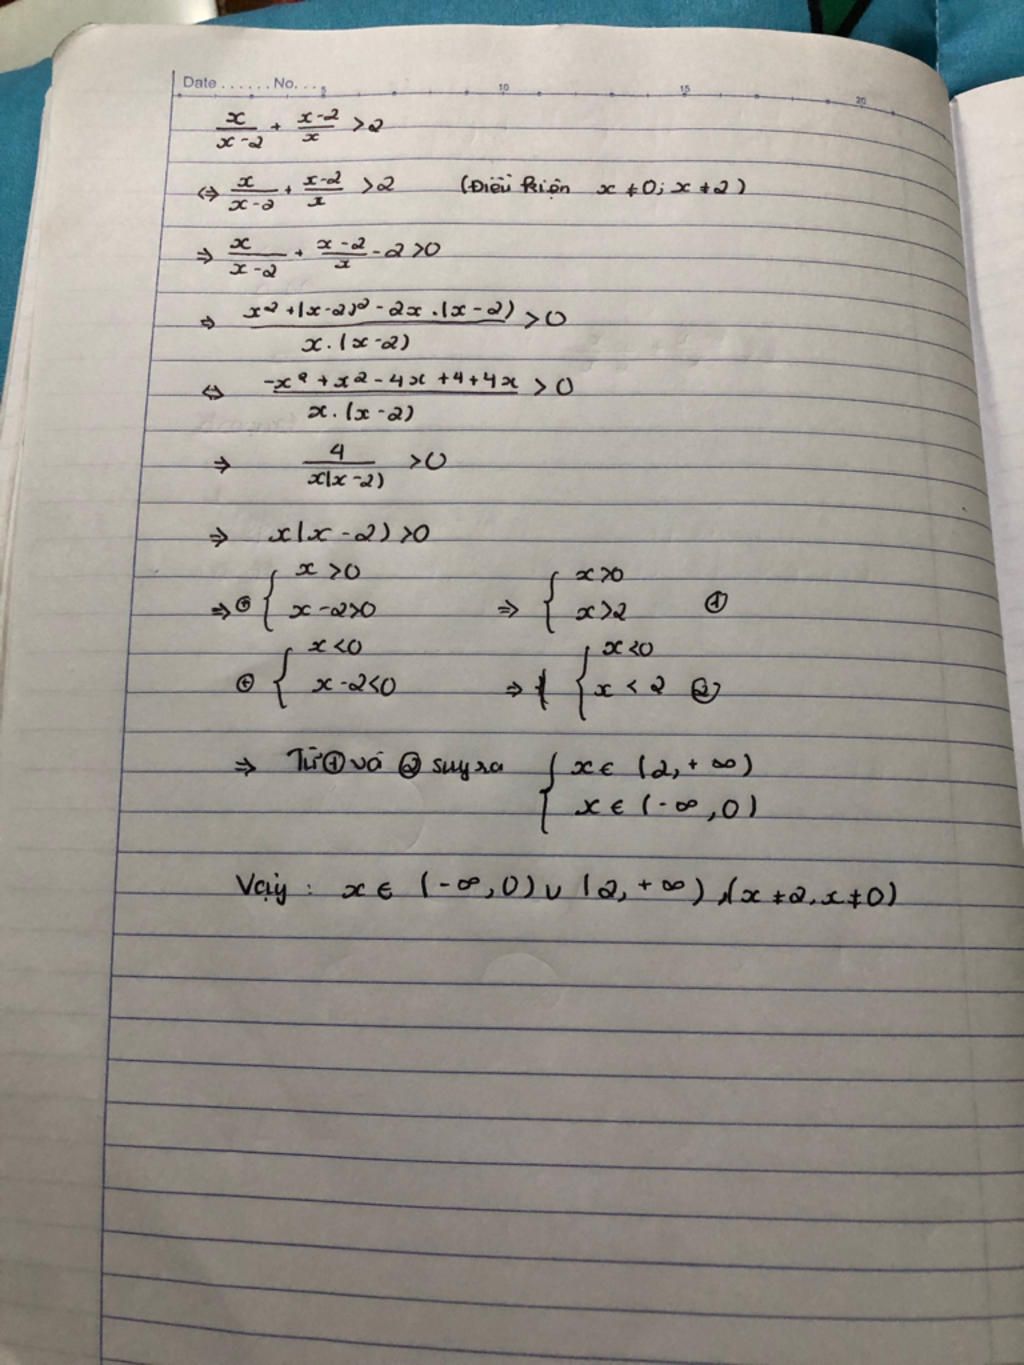 Date ...... No. ... 5 10 15 20
x/(x-2) + (x-2)/x >2
⇔ x/(x-2) + (x-2)/x >2 (Điều kiện x ≠ 0; x ≠ 2)
⇒ x/(x-2) + (x-2)/x - 2 >0
⇒ (x² + (x-2)² - 2x.(x-2))/(x.(x-2)) >0
⇔ (-x² + x² - 4x + 4 + 4x)/(x.(x-2)) > 0
⇒ 4/(x(x-2)) >0
⇒ x(x-2) >0
⇒ ⊕ { x >0 ; x-2>0 ⇒ { x>0 ; x>2 ①
⊕ { x <0 ; x-2<0 ⇒ { x<0 ; x < 2 ②
⇒ Từ ① và ② suy ra { x ∈ (2, +∞) ; x ∈ (-∞, 0)
Vậy : x ∈ (-∞, 0) ∪ (2, +∞), (x ≠ 2, x ≠ 0)